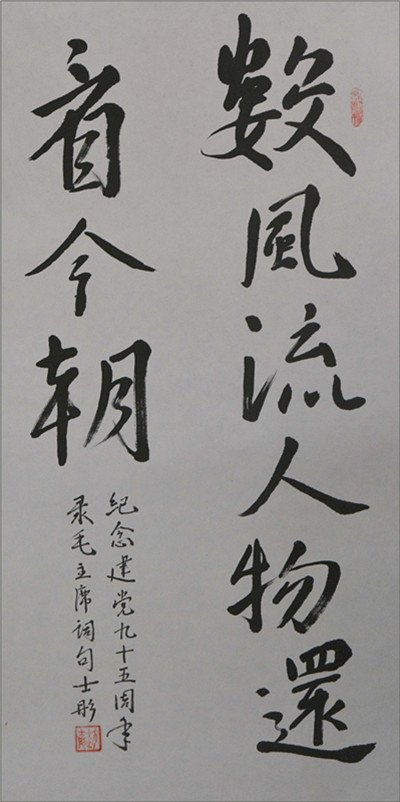 数風流人物還
看今朝
纪念建党九十五周年
录毛主席词句士彤